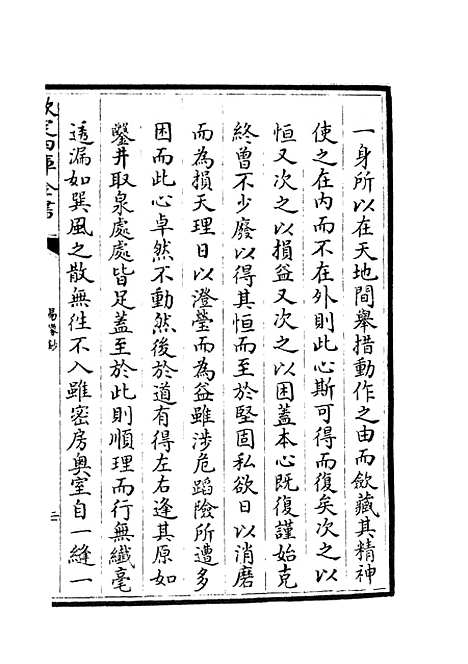 一身所以在天地間舉措動作之由而歛藏其精神
使之在内而不在外則此心斯可得而復矣次之以
恒又次之以損益又次之以困蓋本心既復謹始克
終曾不少廢以得其恒而至於堅固私欲日以消磨
而為損天理日以澄瑩而為益雖涉危蹈險所遭多
困而此心卓然不動然後於道有得左右逢其原如
鑿井取泉處處皆足蓋至於此則順理而行無纖毫
透漏如巽風之散無徃不入雖密房奥室自一縫一
欽定四庫全書
易象鈔
二